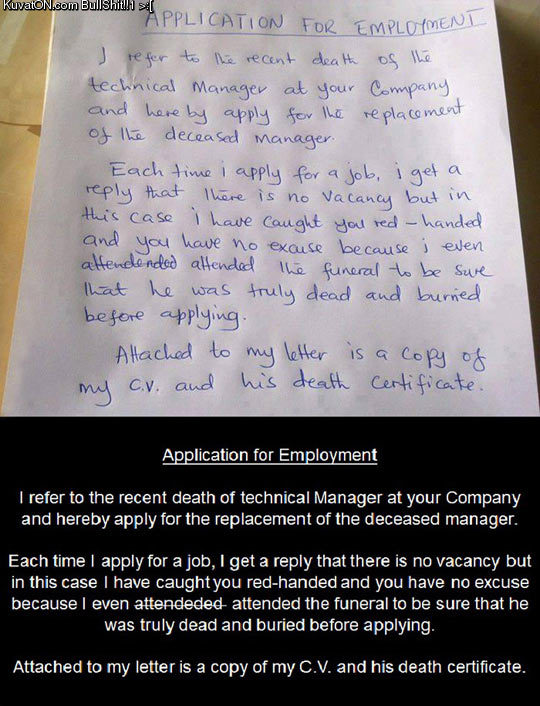 KuvatON.com BullShit!!1 >:[
APPLICATION FOR EMPLOYMENT
I refer to the recent death of the
technical Manager at your Company
and hereby apply for the replacement
of the deceased manager.
Each time i apply for a job, i get a
reply that there is no Vacancy but in
this case i have caught you red-handed
and you have no excuse because i even
attendended attended the funeral to be sure
that he was truly dead and burried
before applying.
Attached to my letter is a copy of
my C.V. and his death certificate.
Application for Employment
I refer to the recent death of technical Manager at your Company
and hereby apply for the replacement of the deceased manager.
Each time I apply for a job, I get a reply that there is no vacancy but
in this case I have caught you red-handed and you have no excuse
because I even attendeded attended the funeral to be sure that he
was truly dead and buried before applying.
Attached to my letter is a copy of my C.V. and his death certificate.